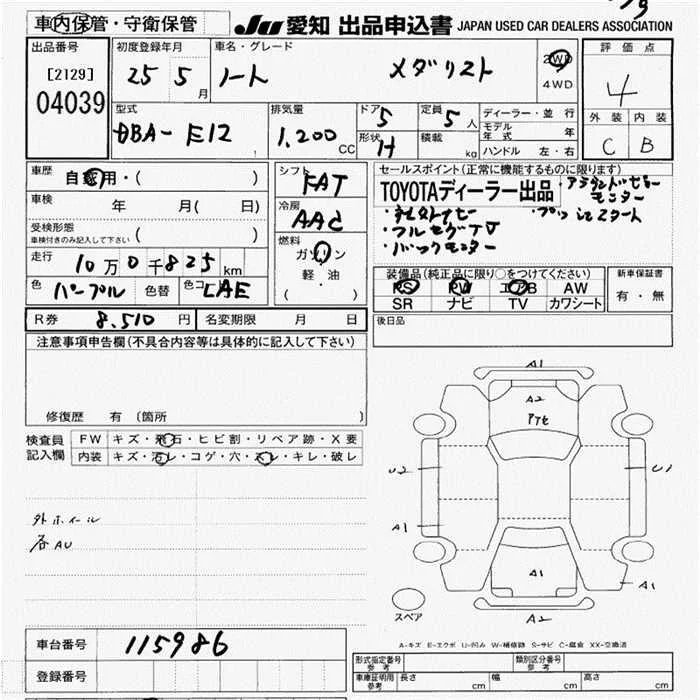 車内保管・守衛保管
JU 愛知 出品申込書 JAPAN USED CAR DEALERS ASSOCIATION
出品番号
[2129]
04039
初度登録年月
25 5 月
車名・グレード
ノート メダリスト
2WD
4WD
評価点
4
外装 内装
C B
型式
DBA- E12
排気量
1,200 CC
ドア 5
形状 H
定員 5 人
積載 kg
ディーラー・並行
モデル年式 年
ハンドル 左・右
車歴
自家用・( )
車検 年 月( 日)
受検形態
車検付きのみ記入して下さい ( )
走行 10万0千825 km
色 パープル 色替 色コード LAE
シフト
FAT
冷房
AAC
燃料
ガソリン
軽・油
( )
セールスポイント(正常に機能するものに限ります)
TOYOTAディーラー出品
・アラウンドビューモニター
・プッシュスタート
・フルセグTV
・バックモニター
装備品(純正品に限り○をつけてください)
PS PW エアB AW
SR ナビ TV カワシート
新車保証書
有・無
R券 8,510 円 名変期限 月 日
後日品
注意事項申告欄(不具合内容等は具体的に記入して下さい)
修復歴 有 (箇所 )
検査員記入欄
FW キズ・飛石・ヒビ割・リペア跡・X要
内装 キズ・汚レ・コゲ・穴・スレ・キレ・破レ
外ホイール
各AU
A1
A2
U2
U1
A1
A1
A1
A2
スペア
A-キズ E-エクボ U-凹み W-補修跡 S-サビ C-腐食 XX-交換済
車台番号 115986
登録番号
形式指定番号 参考
類別区分番号 参考
車庫証明用 参考 長さ cm 幅 cm 高さ cm